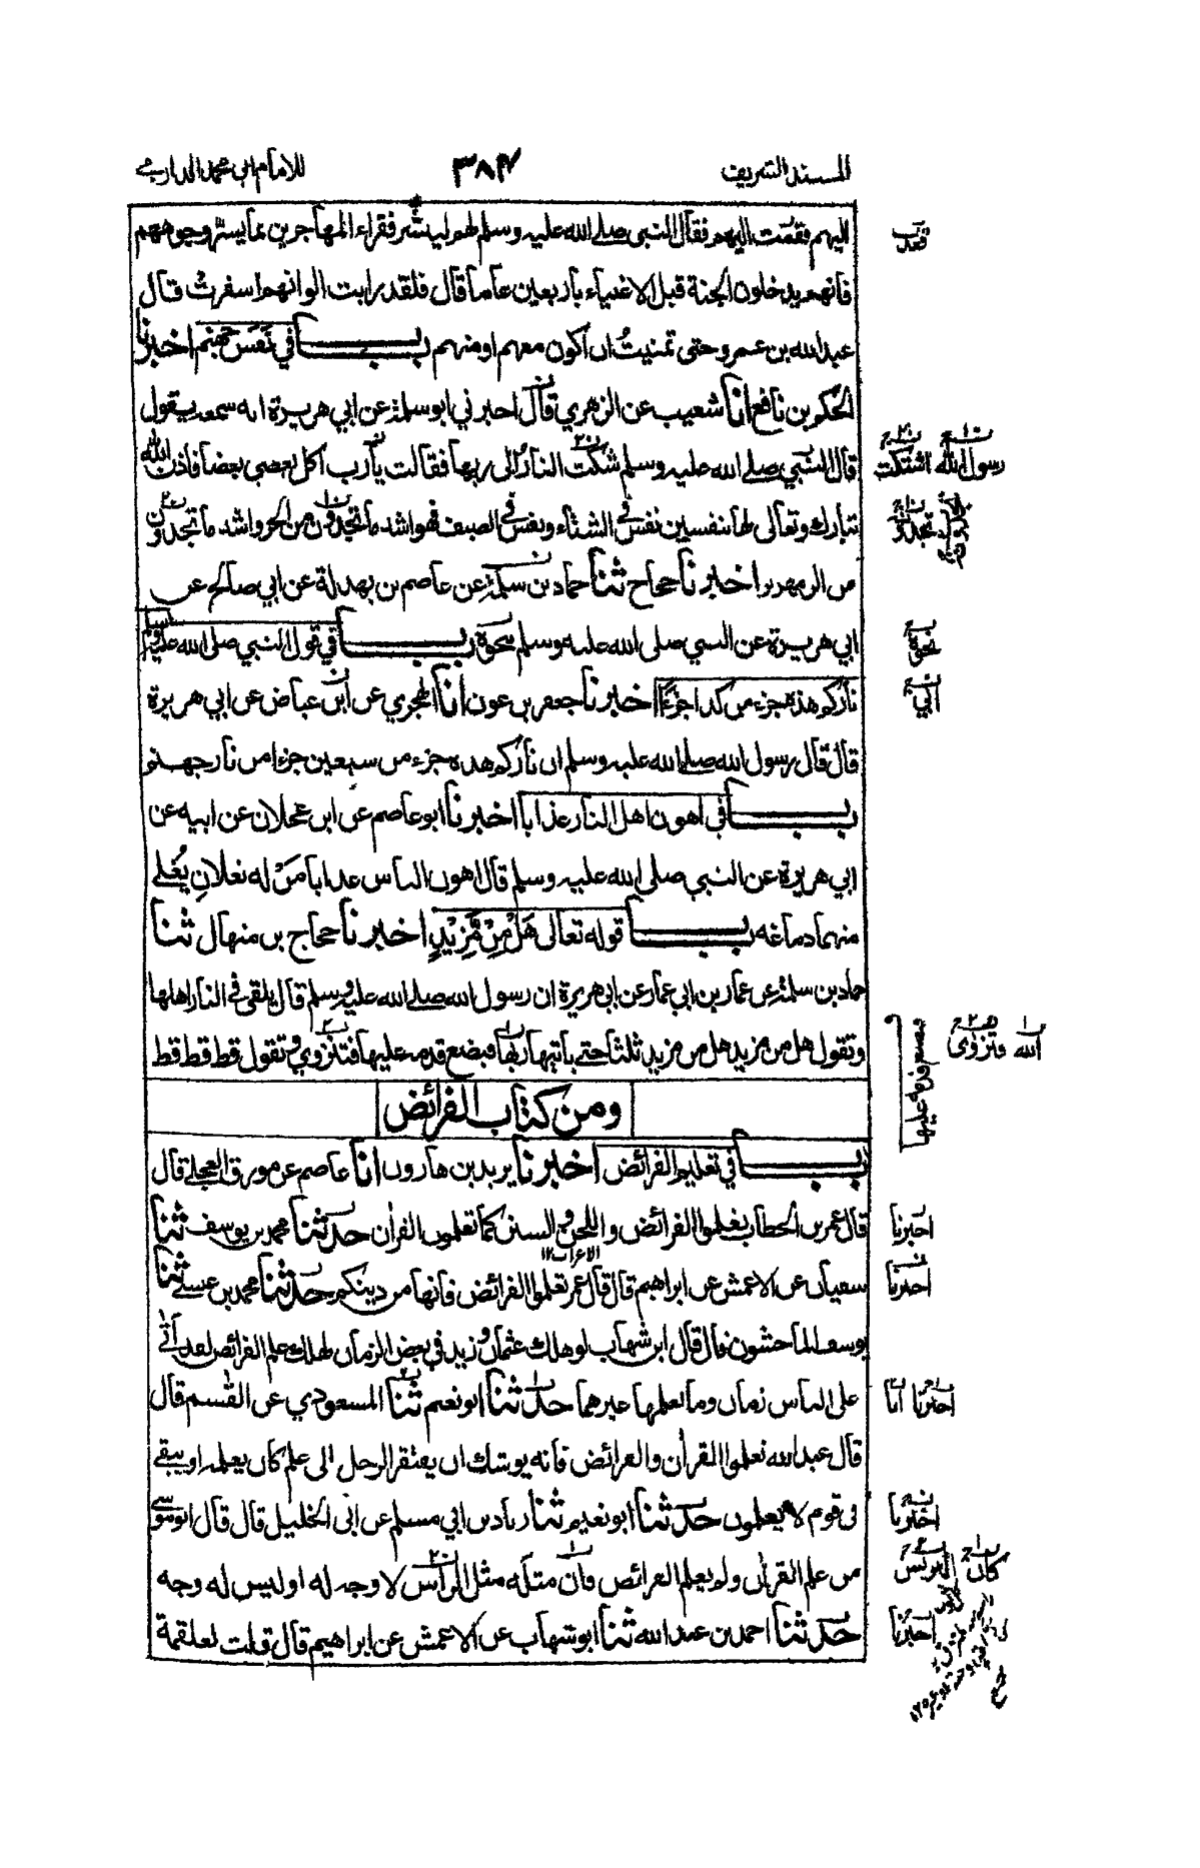 المسند الشريف ٣٨٧ للامام ابي محمد الدارمي
اليهم فقمت اليهم فقال النبي صلے الله عليه وسلم لهم ليبشر فقراء المهاجرين بما يسر وجوههم
فانهم يدخلون الجنة قبل الاغنياء باربعين عاما قال فلقد رايت الوانهم اسفرت قال
عبدالله بن عمرو حتى تمنيت ان اكون معهم او منهم باب في نَفَس جهنم اخبرنا
الحكم بن نافع انا شعيب عن الزهري قال اخبرني ابوسلمة عن ابي هريرة انه سمعه يقول
قال النبي صلے الله عليه وسلم شكت النار الى ربها فقالت يارب اكل بعضي بعضا فاذن الله
تبارك وتعالى لها بنفسين نفس في الشتاء ونفس في الصيف فهو اشد ما تجدون من الحر واشد ما تجدون
من الزمهرير اخبرنا حجاج ثنا حماد بن سلمة عن عاصم بن بهدلة عن ابي صالح عن
ابي هريرة عن النبي صلى الله عليه وسلم نحوه باب في قول النبي صلى الله عليه وسلم
ناركم هذه جزء من كذا جزءًا اخبرنا جعفر بن عون انا الهجري عن ابن عياض عن ابي هريرة
قال قال رسول الله صلے الله عليه وسلم ان ناركم هذه جزء من سبعين جزءا من نار جهنم
باب في اهون اهل النار عذابا اخبرنا ابو عاصم عن ابن عجلان عن ابيه عن
ابي هريرة عن النبي صلى الله عليه وسلم قال اهون الناس عذابا مَنْ له نعلانِ يُغلے
منهما دماغه باب قوله تعالى هَلْ مِنْ مَّزِيْدٍ اخبرنا حجاج بن منهال ثنا
حماد بن سلمة عن عمار بن ابي عمار عن ابي هريرة ان رسول الله صلے الله عليه وسلم قال يلقى في النار اهلها
وتقول هل من مزيد هل من مزيد ثلثا حتے ياتيها ربها فيضع قدمه عليها فتنزوي وتقول قط قط قط
ومن كتاب الفرائض
باب في تعليم الفرائض اخبرنا يزيد بن هارون انا عاصم عن مورق العجلے قال
قال عمر بن الخطاب تعلموا الفرائض واللحن والسنن كما تعلمون القرأن حدثنا محمد بن يوسف ثنا
الاعراب١٢
سفيان عن الاعمش عن ابراهيم قال قال عمر تعلموا الفرائض فانها من دينكم حدثنا محمد بن عيسے ثنا
يوسف الماجشون قال قال ابن شهاب لو هلك عثمان وزيد في بعض الزمان لهلك علم الفرائض لقد اتى
على الناس زمان وما يعلمها غيرهما حدثنا ابو نعيم ثنا المسعودي عن القسم قال
قال عبدالله تعلموا القرأن والفرائض فانه يوشك ان يفتقر الرجل الى علم كان يعلمه او يبقے
في قوم لا يعلمون حدثنا ابو نعيم ثنا زياد بن ابي مسلم عن ابي الخليل قال قال ابو موسے
من علم القرأن ولم يعلم الفرائض فان مثله مثل الراس لا وجه له او ليس له وجه
حدثنا احمد بن عبد الله ثنا ابو شهاب عن الاعمش عن ابراهيم قال قلت لعلقمة
رسول الله اشتكت
نحوه
ابي
الله فتزوى
فيضع قدمه عليها
اخبرنا
اخبرنا
اخبرنا انا
اخبرنا
كان البرنس
اخبرنا